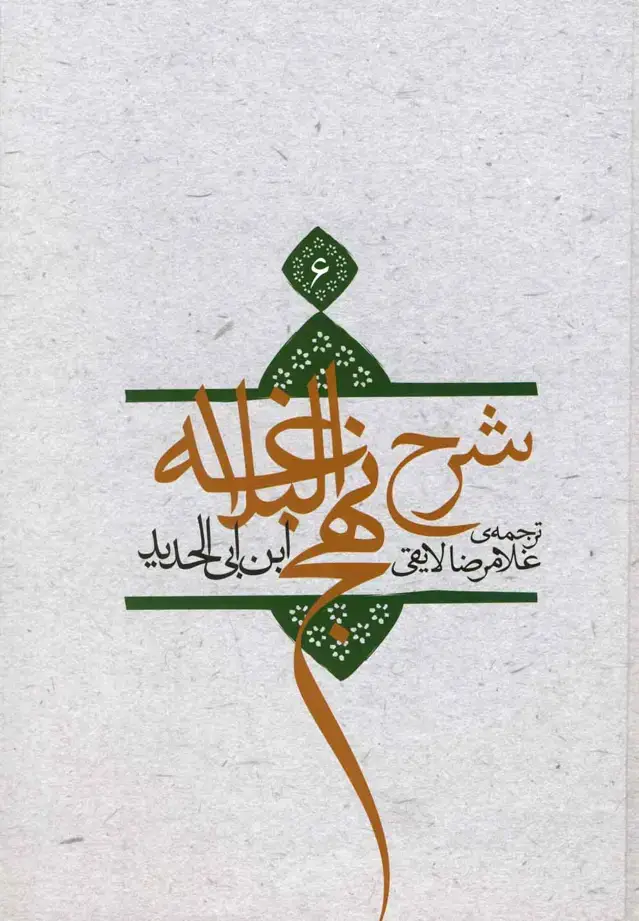 ۶
شرح نهج البلاغه
ابن ابی الحدید
ترجمه‌ی
غلامرضا لایقی